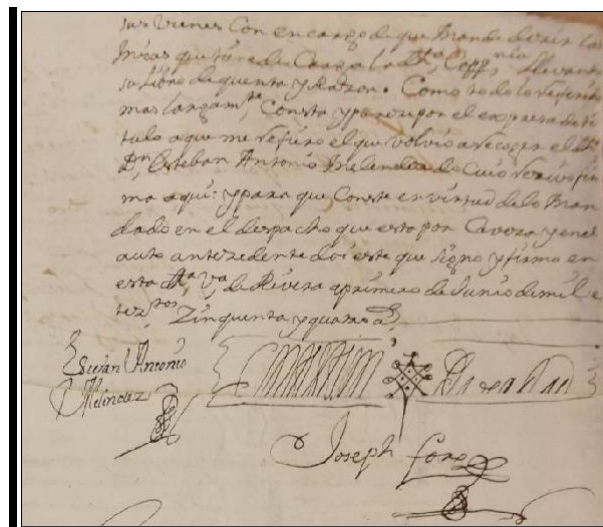 sus vienes Con encargo de que mande dezir las
Misas que tiene de Carga la dha, Coff.nia, llevando
su libro de quenta y Razon. Como todo lo referido
mas largam.te Consta y parece por el expresado ti
tulo a que me refiero el que volvio a recoger el dho
Dn, Esteban Antonio Melendez de Cuio recivo fir
ma aqui: y para que Conste en virtud de lo Man
dado en el despacho que esta por Caveza y en el
auto antezedente doi este que signo y firmo en
esta dha, Va, de Rivera a primero de Junio de mil, e
tez.tos Zinquenta y quatro as
Estevan Antonio
Melendez
Joseph